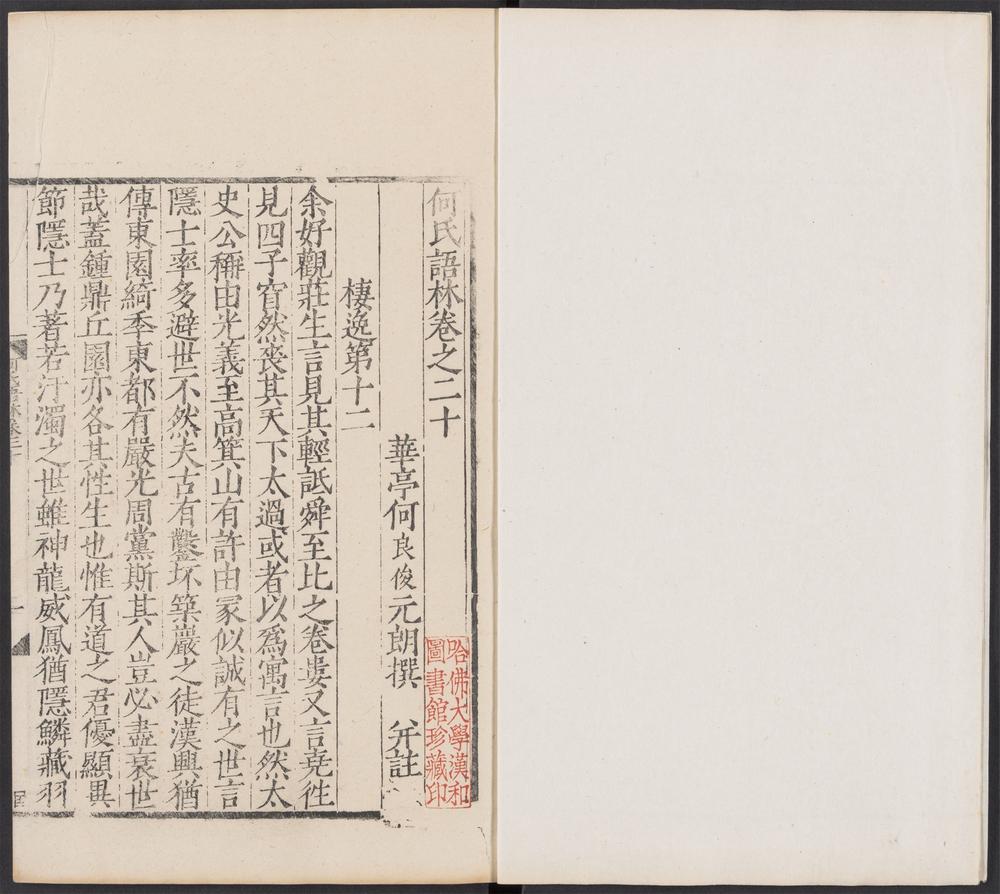 何氏語林卷之二十
華亭何良俊元朗撰 并註
棲逸第十二
余好觀莊生言見其輕詆舜至比之卷婁又言堯徃
見四子窅然喪其天下太過或者以爲寓言也然太
史公稱由光義至高箕山有許由冢似誠有之世言
隱士率多避世不然夫古有鑿坏築巖之徒漢興猶
傳東園綺季東都有嚴光周黨斯其人豈必盡衰世
哉蓋鍾鼎丘園亦各其性生也惟有道之君優顯異
節隱士乃著若汙濁之世雖神龍威鳳猶隱鱗藏羽
哈佛大學漢和
圖書館珍藏印